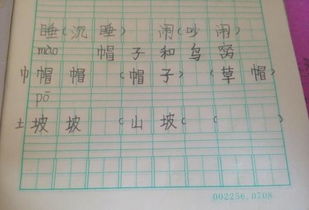 睡(沉睡) 闹(吵闹)
mào 帽子和鸟窝
巾 帽 帽 (帽子) (草帽)
pō
土 坡 坡 (山坡) ( )
002256.0708